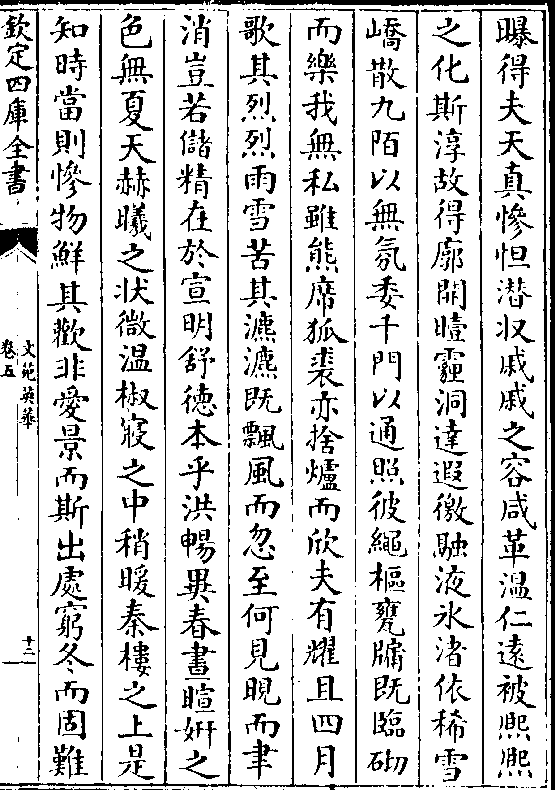 曝得夫天真慘怛潛収戚戚之容咸革温仁遠被熙熙
之化斯淳故得廓開曀霾洞達遐徼融液氷渚依稀雪
嶠散九陌以無氛委千門以通照彼繩樞甕牖既臨砌
而樂我無私雖熊席狐裘亦捨爐而欣夫有耀且四月
歌其烈烈雨雪苦其瀌瀌既飄風而忽至何見晛而聿
消豈若儲精在於宣明舒德本乎洪暢異春晝暄妍之
色無夏天赫曦之状微温椒寢之中稍暖秦樓之上是
知時當則慘物鮮其歡非愛景而斯出處窮冬而固難
欽定四庫全書
文苑英華
卷五
十二